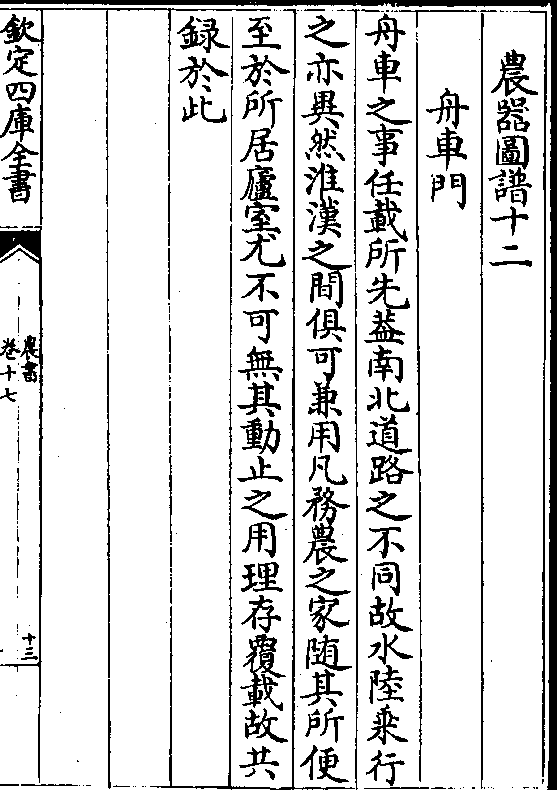 農器圖譜十二
舟車門
舟車之事任載所先葢南北道路之不同故水陸乘行
之亦異然淮漢之間俱可兼用凡務農之家随其所便
至於所居廬室尤不可無其動止之用理存覆載故共
録於此
欽定四庫全書
農書
卷十七
十三